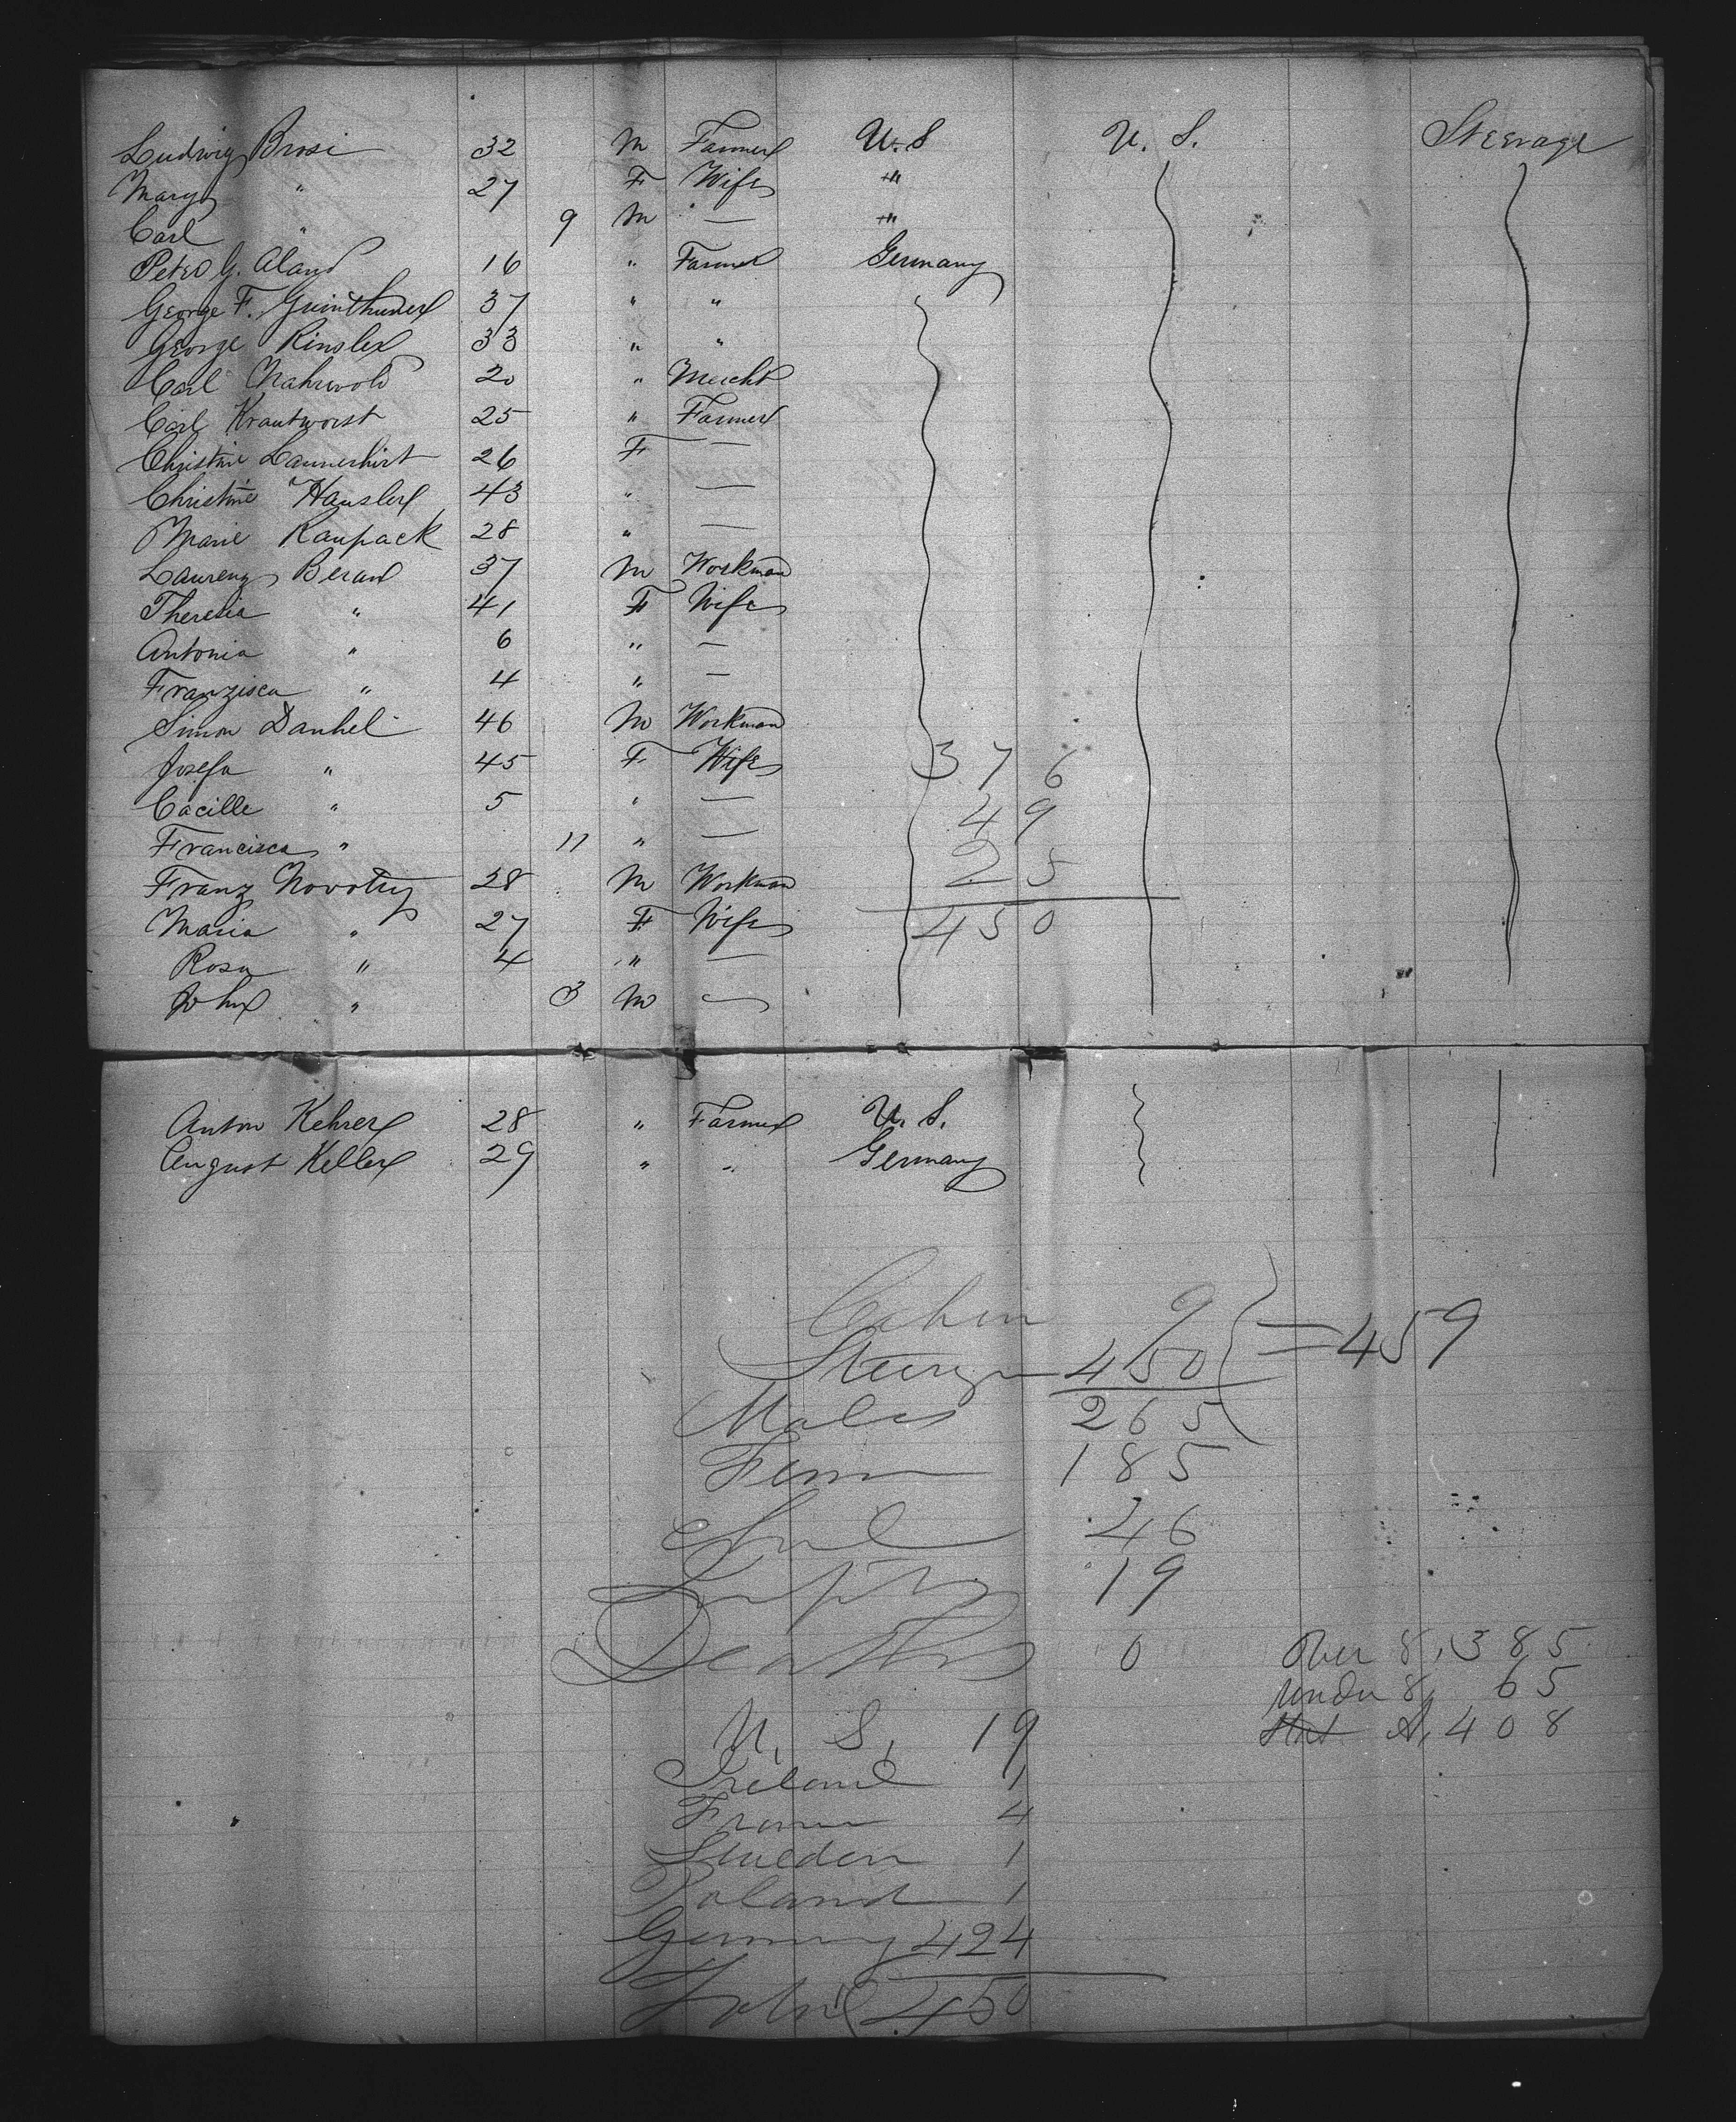 Ludwig Brosi 32 M Farmer U.S U.S. Steerage
Mary " 27 F Wife "
Carl " 9 M — "
Peter G. Aland 16 " Farmer Germany
George F. 37 " "
George Rinsler 33 " "
Carl Nahrwold 20 " Mercht
Carl Krautworst 25 " Farmer
Christine Lannerhirt 26 F —
Christine Hausler 43 " —
Marie Raupack 28 " —
Laurenz Beran 37 M Workman
Theresia " 41 F Wife
Antonia " 6 " —
Franzisca " 4 " —
Simon Danhel 46 M Workman
Josefa " 45 F Wife 376
Cacille " 5 " — 49
Francisca " 11 " — 25
Franz Novotny 28 M Workman
Maria " 27 F Wife 450
Rosa " 4 " —
John " 3 M —
Anton Kehrer 28 " Farmer U.S.
August Keller 29 " " Germany
Cabin 9
Steerage 450 = 459
Males 265
Fem 185
46
19
Deaths 0 Over 8, 385
under 8, 65
A, 408
U. S. 19
Ireland 1
France 4
Sweden 1
Poland 1
Germany 424
Total 450